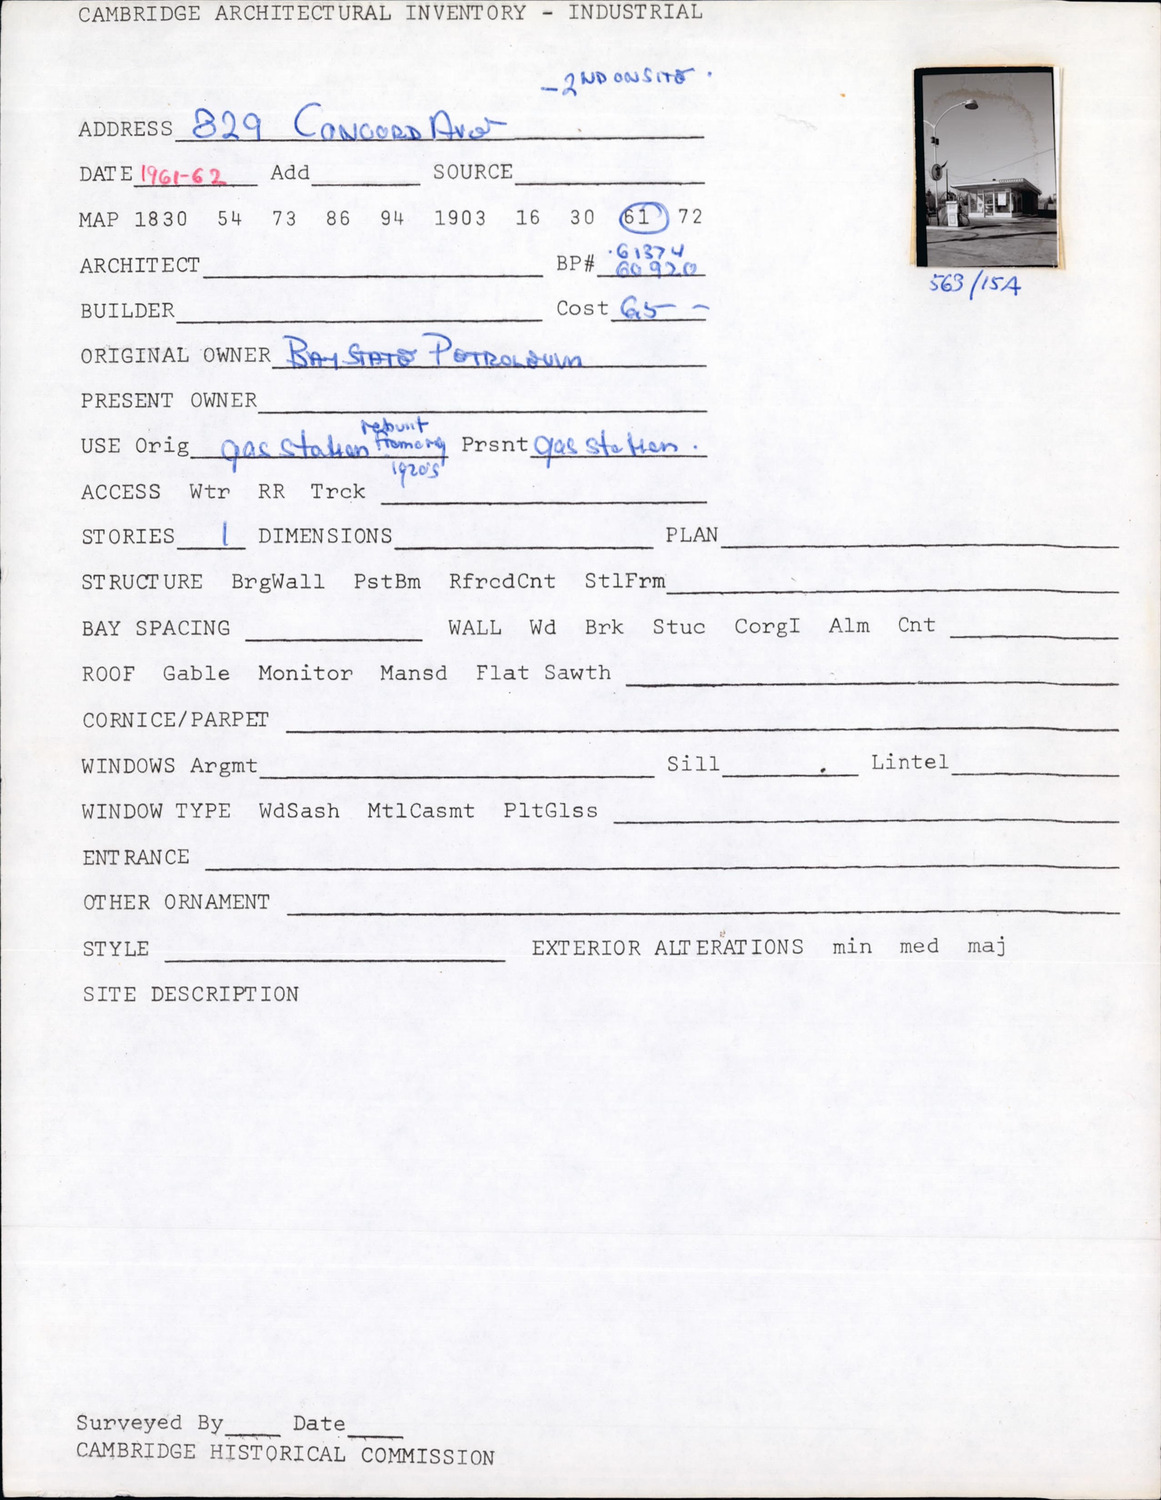 CAMBRIDGE ARCHITECTURAL INVENTORY - INDUSTRIAL
- 2ND ON SITE .
ADDRESS 829 CONCORD AVE
DATE 1961-62 Add SOURCE
MAP 1830 54 73 86 94 1903 16 30 61 72
ARCHITECT BP# 61374
60920
BUILDER Cost
ORIGINAL OWNER BAY STATE PETROLEUM
PRESENT OWNER
rebuilt
USE Orig gas station from orig Prsnt gas station .
1920's
ACCESS Wtr RR Trck
STORIES 1 DIMENSIONS PLAN
STRUCTURE BrgWall PstBm RfrcdCnt StlFrm
BAY SPACING WALL Wd Brk Stuc CorgI Alm Cnt
ROOF Gable Monitor Mansd Flat Sawth
CORNICE/PARPET
WINDOWS Argmt Sill Lintel
WINDOW TYPE WdSash MtlCasmt PltGlss
ENTRANCE
OTHER ORNAMENT
STYLE EXTERIOR ALTERATIONS min med maj
SITE DESCRIPTION
563/15A
Surveyed By Date
CAMBRIDGE HISTORICAL COMMISSION